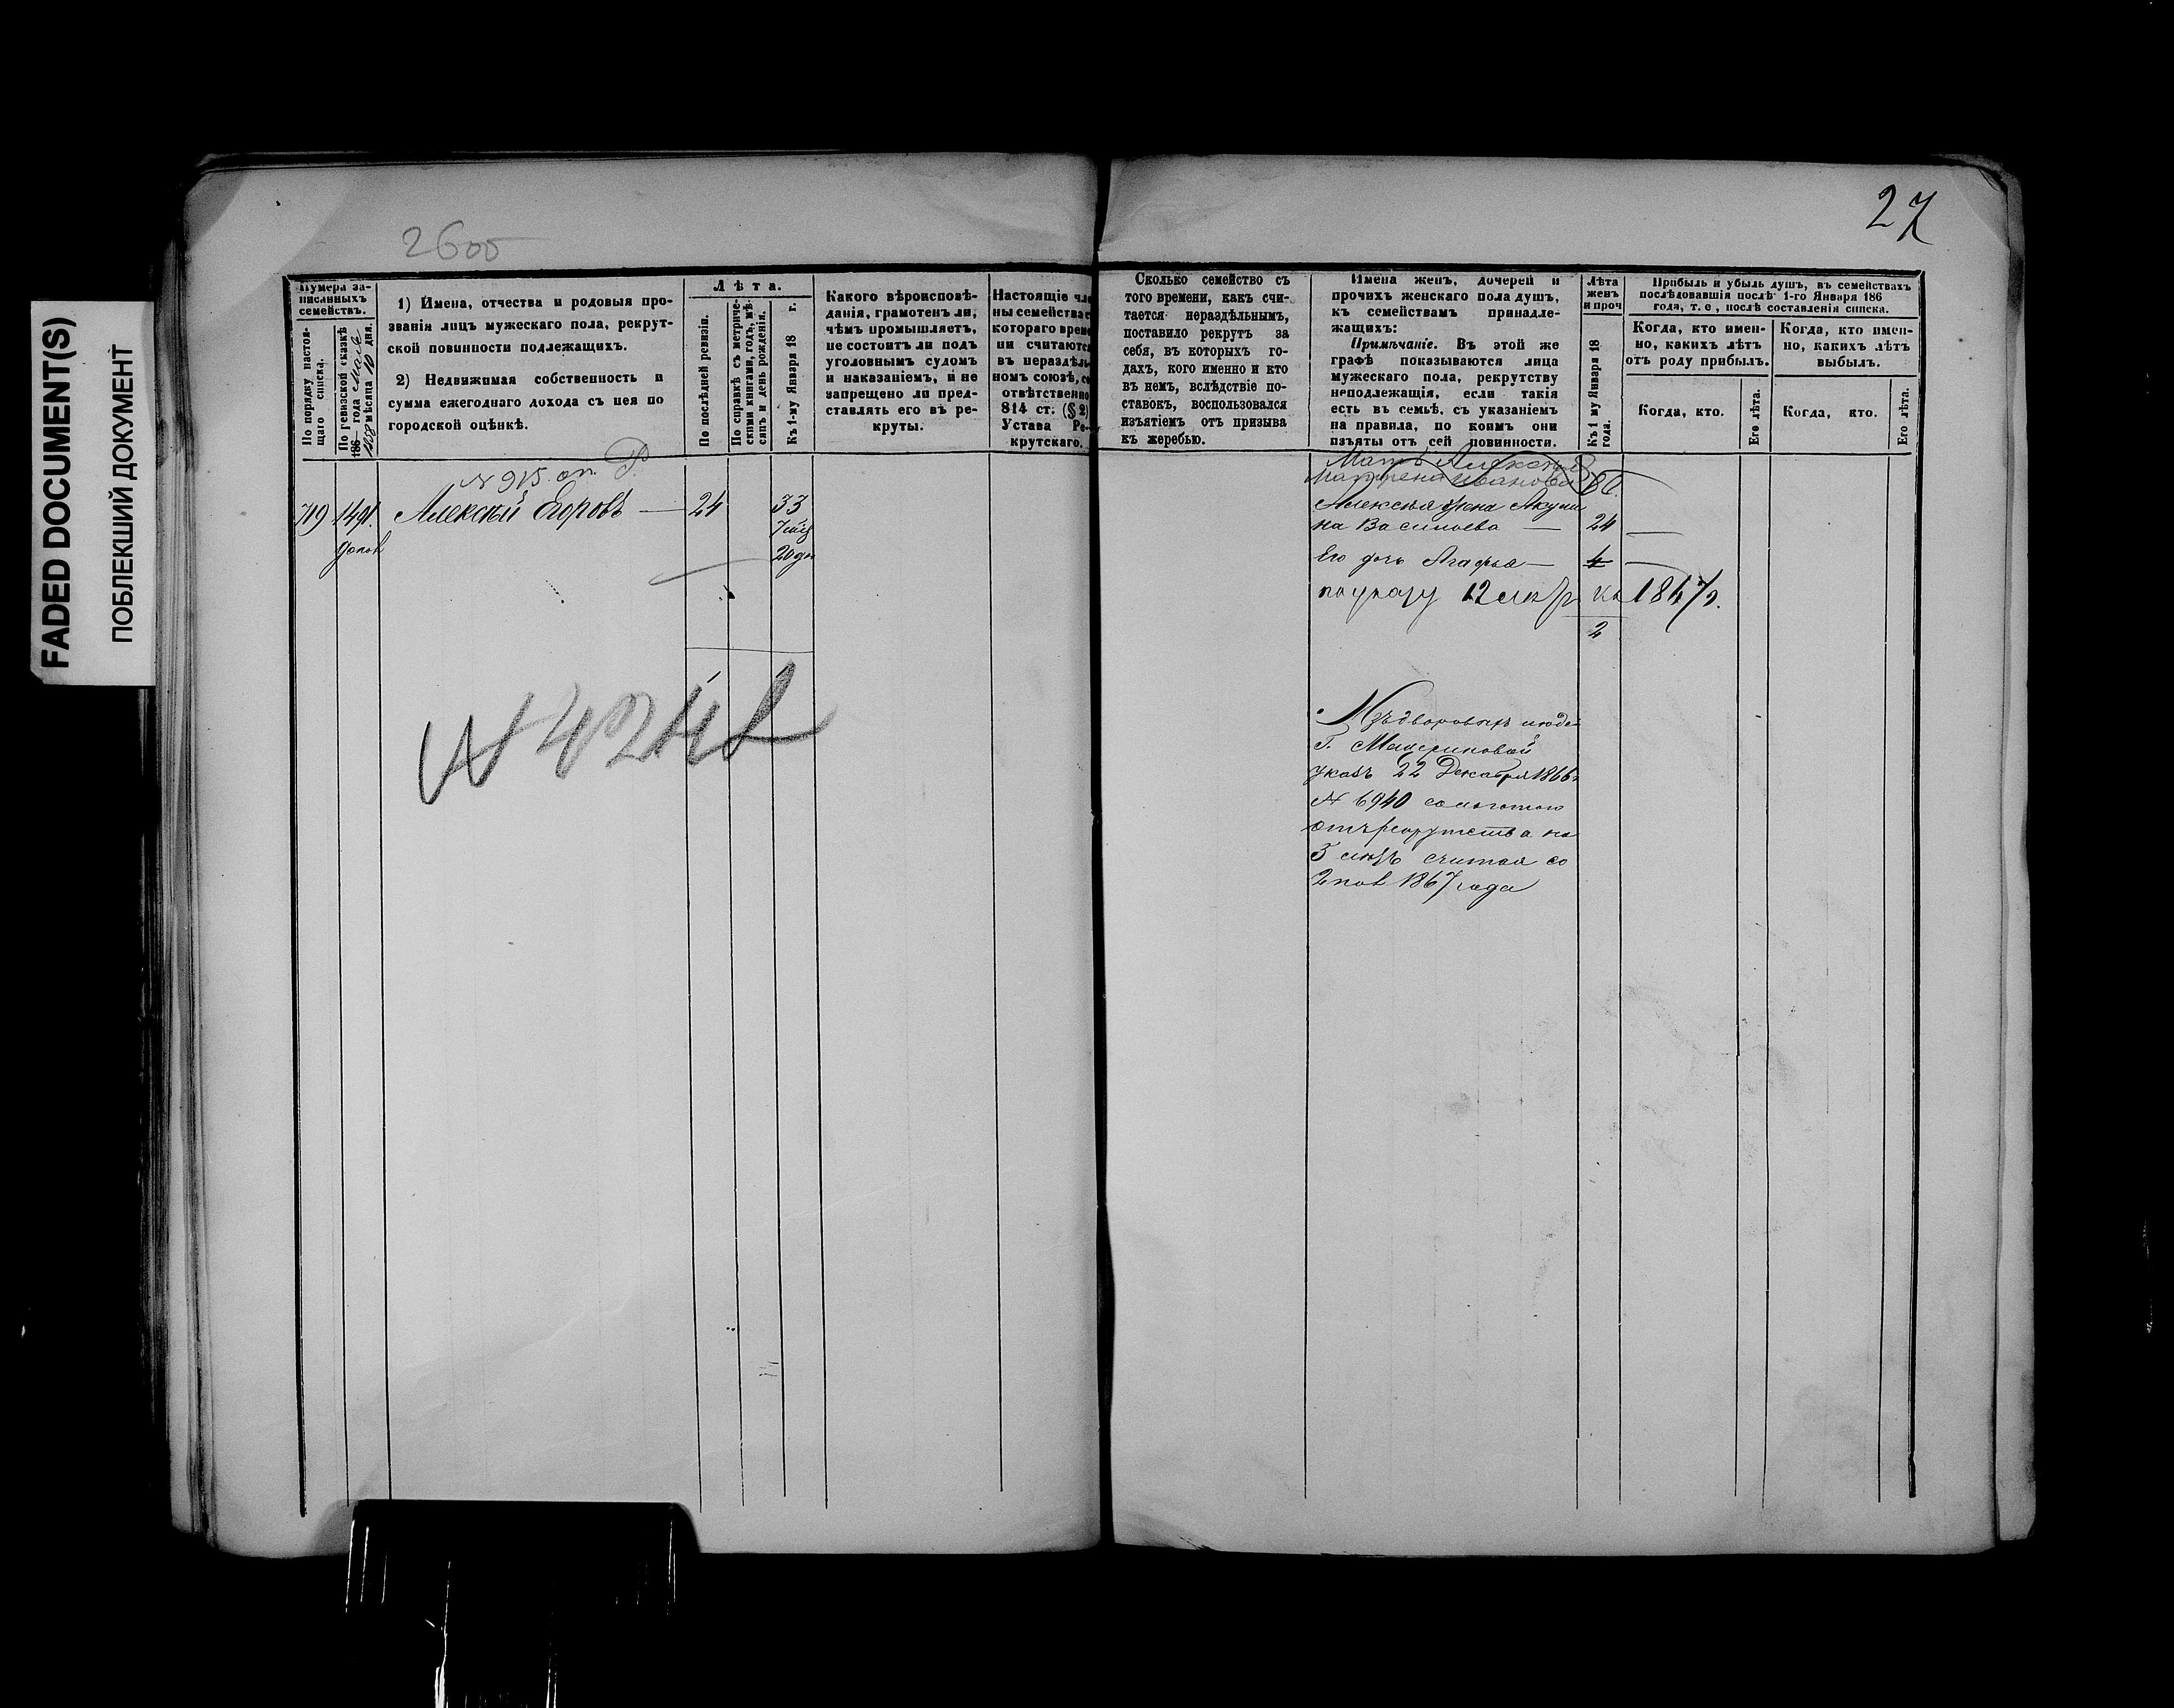 FADED DOCUMENT(S)
ПОБЛЕКШИЙ ДОКУМЕНТ
2600
27
Нумера за-
писанныхъ
семействъ.
По порядку настоя-
щаго списка.
По ревизской сказкѣ
186 года
мѣсяца 10 дня.
1) Имена, отчества и родовыя про-
званія лицъ мужескаго пола, рекрут-
ской повинности подлежащихъ.
2) Недвижимая собственность и
сумма ежегоднаго дохода съ нея по
городской оцѣнкѣ.
Лѣта.
По послѣдней ревизіи.
По справкѣ съ метриче-
скими книгами, годъ, мѣ-
сяцъ и день рожденія.
Къ 1-му Января 18 г.
Какого вѣроисповѣ-
данія, грамотенъ ли,
чѣмъ промышляетъ,
не состоитъ ли подъ
уголовнымъ судомъ
и наказаніемъ, и не
запрещено ли пред-
ставлять его въ ре-
круты.
Настоящіе чле
ны семейства с
котораго време
ни считаются
въ нераздѣль
номъ союзѣ, со
отвѣтственно
814 ст. (§ 2)
Устава Ре-
крутскаго.
Сколько семейство съ
того времени, какъ счи-
тается нераздѣльнымъ,
поставило рекрутъ за
себя, въ которыхъ го-
дахъ, кого именно и кто
въ немъ, вслѣдствіе по-
ставокъ, воспользовался
изъятіемъ отъ призыва
къ жеребью.
Имена женъ, дочерей и
прочихъ женскаго пола душъ,
къ семействамъ принадле-
жащихъ:
Примѣчаніе. Въ этой же
графѣ показываются лица
мужескаго пола, рекрутству
неподлежащія, если такія
есть въ семьѣ, съ указаніемъ
на правила, по коимъ они
изъяты отъ сей повинности.
Лѣта
женъ
и проч
Къ 1 му Января 18
года.
Прибыль и убыль душъ, въ семействахъ
послѣдовавшія послѣ 1-го Января 186
года, т. е , послѣ составленія списка.
Когда, кто имен-
но, какихъ лѣтъ
отъ роду прибылъ.
Когда, кто имен-
но, какихъ лѣтъ
выбылъ.
Когда, кто.
Его лѣта.
Когда, кто.
Его лѣта.
N 915 оп.
719 1491. Алексѣй Егоровъ — 24 33
допол 7 мѣс
20 дн
Мать Алексѣя
Матрена Иванова
Алексѣя жена Акули
на Васильева — 24
Его дочь Агафья — 4
по указу 12 къ 1867 г.
2
N 424
Изъ дворовыхъ людей
Г.
указъ 22 Декабря 1866 г
N 6940 со льготою
отъ рекрутства на
считая со
1867 года